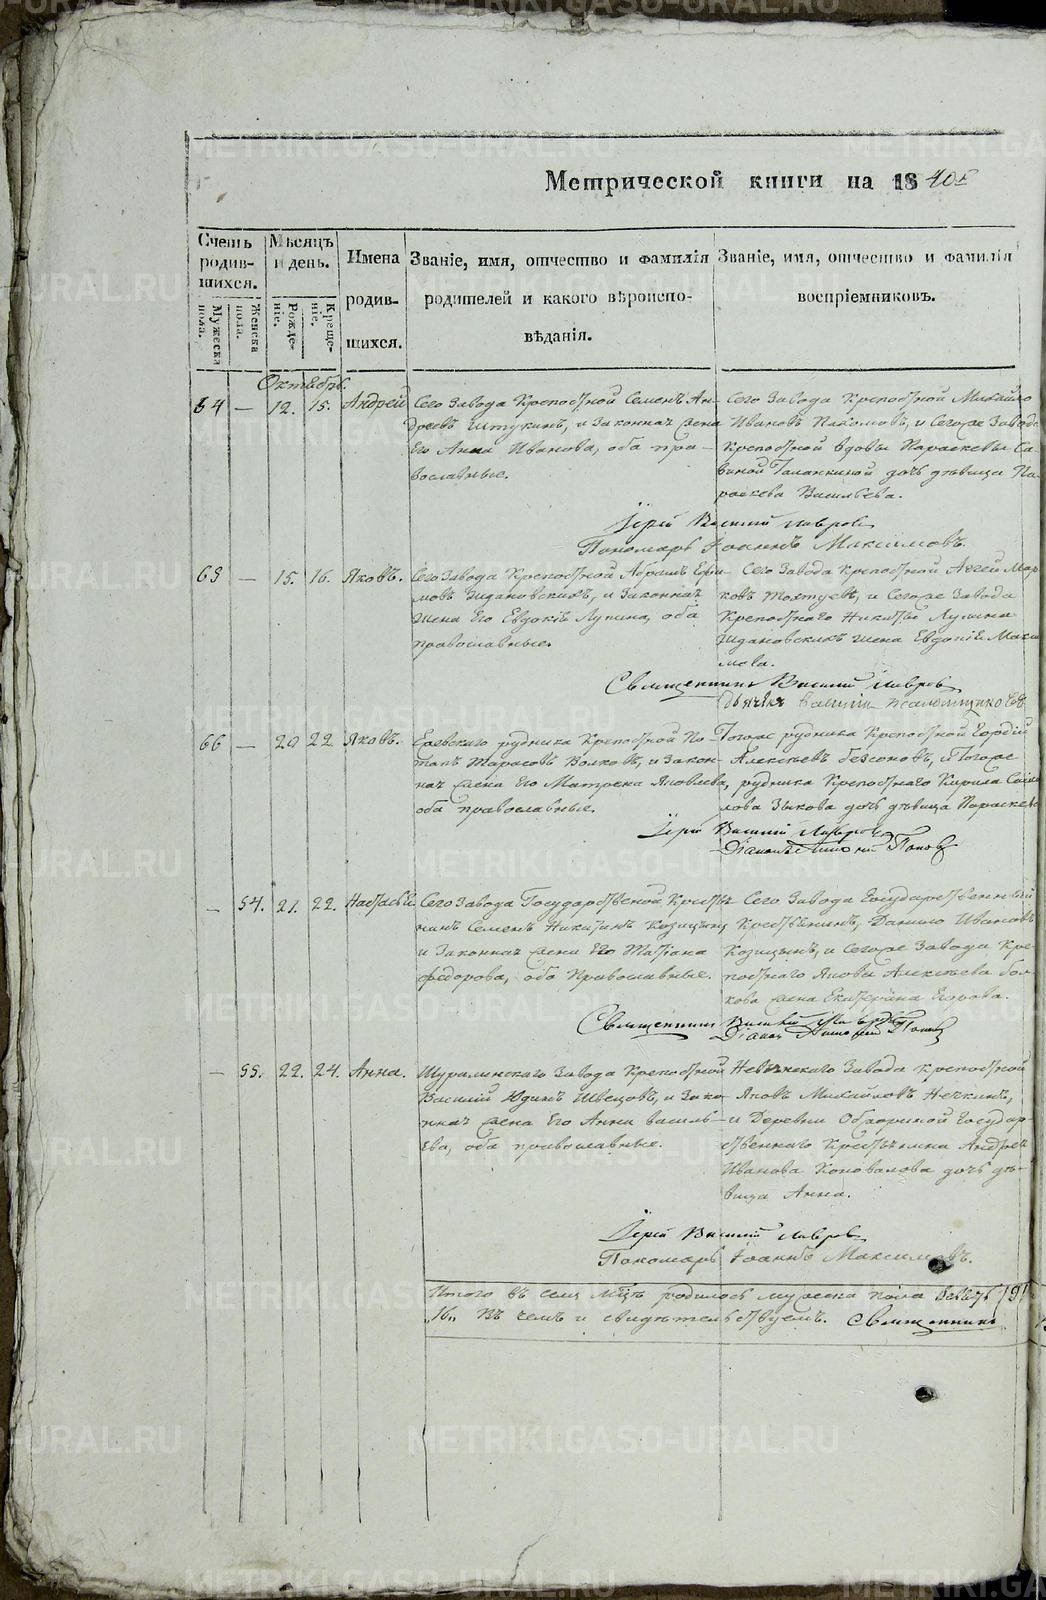 Метрической книги на 1840 г
Счетъ родив-шихся.
Мужеска пола.
Женска пола.
Мѣсяцъ и день.
Рожде-ніе.
Креще-ніе.
Имена родив-шихся.
Званіе, имя, отчество и фамилія
родителей и какого вѣроиспо-
вѣданія.
Званіе, имя, отчество и фамилія
воспріемниковъ.
Октябрь.
64 — 12. 15. Андрей
Сего Завода Крепостной Семенъ Ан-
дреевъ Щукинъ, и законная жена
Его Анна Иванова, оба пра-
вославные.
Сего Завода Крепостной Михайло
Ивановъ Пахомовъ, и Сегоже Завода
Крепостной вдовы Параскевы Са-
виной Галанкиной дочь дѣвица Па-
раскева Васильева.
Іерей Василий Лавровъ
Пономарь Іоаннъ Максимовъ.
65 — 15. 16. Яковъ.
Сего Завода Крепостной Абрамъ Ефи-
мовъ Ждановскихъ, и Законная
жена Его Евдокія Лупина, оба
православные.
Сего Завода Крепостной Аггей Мар-
ковъ, и Сегоже Завода
Крепостнаго Никиты Лупина
Ждановскихъ жена Евдокія Макси-
мова.
Священникъ Василий Лавровъ
66 — 20 22. Яковъ.
рудника Крепостной По-
тапъ Тарасовъ Волковъ, и Закон-
ная жена Его Матрена Яковлева,
оба православные.
Тогоже рудника Крепостной Гордій
Алексѣевъ Безсоновъ, и Тогоже
рудника Крепостнаго Кирила
Зыкова дочь дѣвица Параскева
Іерей Василий Лавровъ
Діаконъ Поповъ
— 54. 21. 22. Настасья.
Сего Завода Государственной Кресть-
янинъ Семенъ Никитинъ Козицынъ
и Законная жена Его Татіана
Федорова, оба Православные.
Сего Завода Государственный
Крестьянинъ, Данило Ивановъ
Козицынъ, и Сегоже Завода Кре-
постнаго Якова Алексѣева Вол-
кова жена Екатерина Егорова.
Священникъ Василий Лавровъ
Діаконъ Поповъ
— 55. 22. 24. Анна.
Шуралинскаго Завода Крепостной
Василий Юдинъ Швецовъ, и зако-
нная жена Его Анна василь-
ева, оба православные.
Невьянскаго Завода Крепостной
Яковъ Михайловъ Нечкинъ,
и Деревни Государ-
ственнаго Крестьянина Андрея
Иванова Коновалова дочь дѣ-
вица Анна.
Іерей Василий Лавровъ
Пономарь Іоаннъ Максимовъ.
Итого въ семъ Мцѣ родилось мужеска пола девять /9/
„16„ Въ чемъ и свидѣтельствуемъ. Священникъ